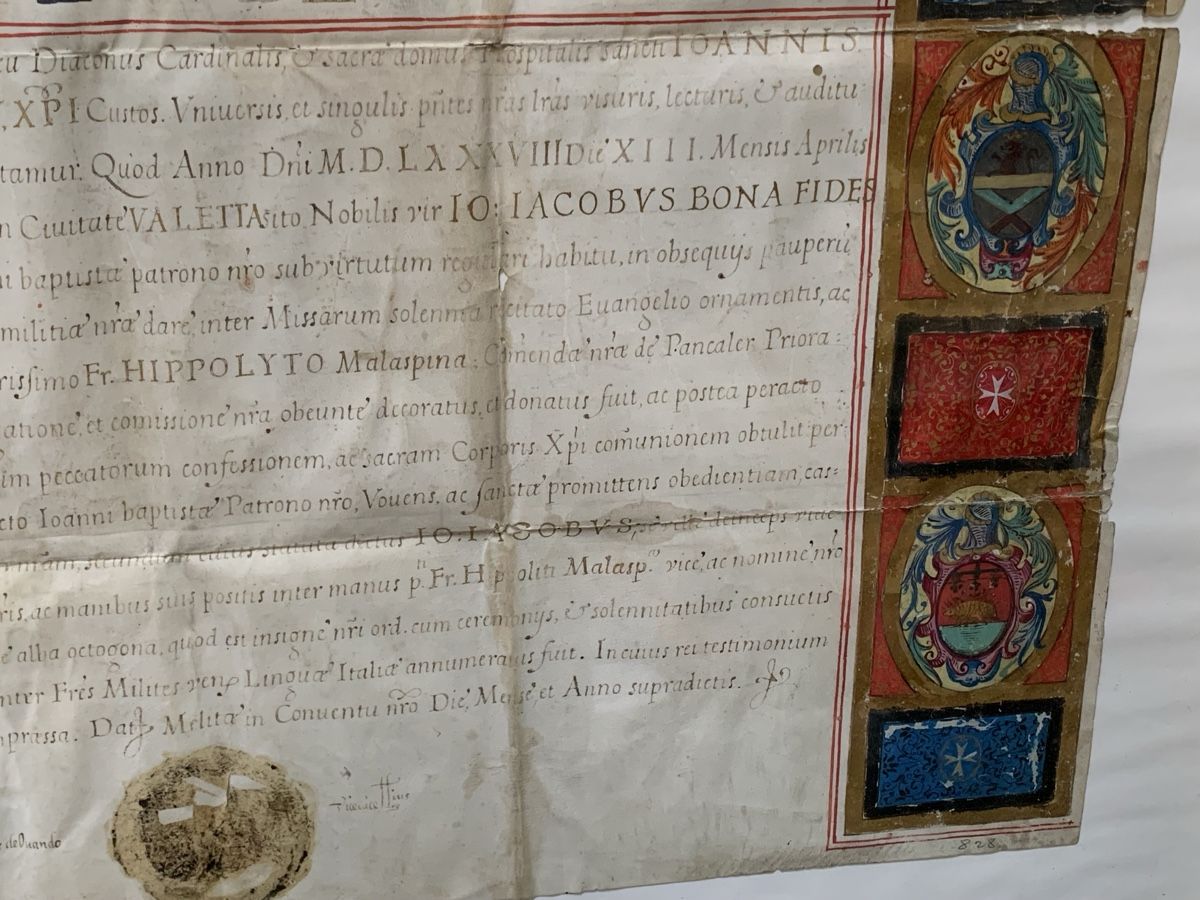 Diaconus Cardinalis, & sacrae domus Hospitalis sancti IOANNIS
XPI Custos. Vniuersis, et singulis pñtes nras lras visuris, lecturis, & auditu
tamur. Quod Anno Dñi M.D.LXXXVIII Die XIII. Mensis Aprilis
Ciuitate VALETTA sito Nobilis vir IO: IACOBVS BONA FIDES
baptistae patrono nro sub virtutum regulari habitu, in obsequijs pauperū
militiae nrae dare, inter Missarum solennia recitato Euangelio ornamentis, ac
rissimo Fr. HIPPOLYTO Malaspina. Cõmendae nrae de Pancaler Priora:
atione, et comissione nra obeunte decoratus, et donatus fuit, ac postea peracto
im peccatorum confessionem, ac sacram Corporis Xpi comunionem obtulit per:
cto Ioanni baptistae Patrono nro, Vouens, ac sanctae promittens obedientiam, cas:
statuta IO. IACOBVS, deinceps
ris, ac manibus suis positis inter manus p. Fr. Hippoliti Malasp. vice, ac nomine nro
alba octogona, quod est insigne nri ord. cum ceremonijs, & solennitatibus consuetis
nter Fres Milites ven Linguae Italiae annumeratus fuit. In cuius rei testimonium
prassa. Dat Melitae in Conuentu nro Die, Mense, et Anno supradictis.
828